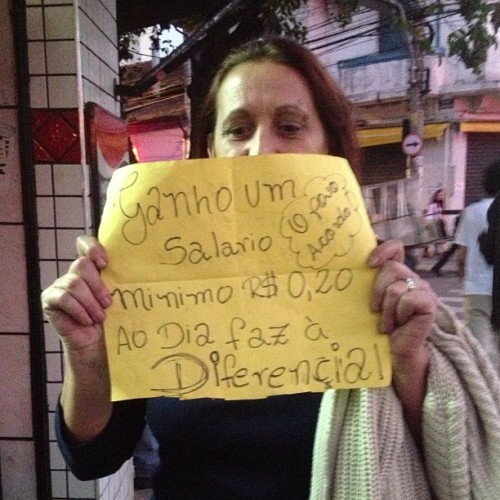 Ganho um
Salario
minimo R$ 0,20
Ao Dia faz à
Diferençial
O povo
Acorda!